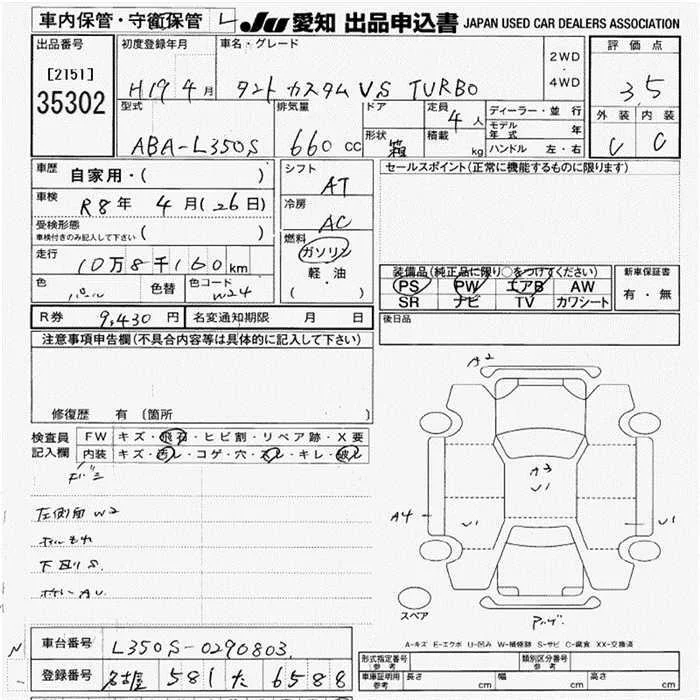 車内保管・守衛保管 JU 愛知 出品申込書 JAPAN USED CAR DEALERS ASSOCIATION
出品番号
[2151]
35302
初度登録年月
H19 4月
車名・グレード
タント カスタム VS TURBO
2WD
・
4WD
評価点
3.5
外装 内装
C C
型式
ABA-L350S
排気量
660 cc
ドア
形状
箱
定員 4人
積載 kg
ディーラー・並行
モデル年式 年
ハンドル 左・右
車歴 自家用・( )
車検 R8年 4月(26日)
受検形態
車検付きのみ記入して下さい ( )
走行 10万8千160km
色 パール 色替 色コード W24
シフト AT
冷房 AC
燃料
ガソリン
軽・油
( )
セールスポイント(正常に機能するものに限ります)
装備品(純正品に限り○をつけてください)
PS PW エアB AW
SR ナビ TV カワシート
新車保証書
有・無
後日品
R券 9,430円 名変通知期限 月 日
注意事項申告欄(不具合内容等は具体的に記入して下さい)
修復歴 有 (箇所 )
検査員
記入欄
FW キズ・飛石・ヒビ割・リペア跡・X要
内装 キズ・汚レ・コゲ・穴・スレ・キレ・破レ
左側面 W2
下回りS
A2
A3
U1
A4
U1
U1
スペア
A-キズ E-エクボ U-凹み W-補修跡 S-サビ C-腐食 XX-交換済
車台番号 L350S-0290803
登録番号 名古屋 581 た 6588
形式指定番号
参考
類別区分番号
参考
車庫証明用
参考
長さ cm 幅 cm 高さ cm